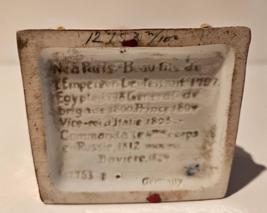 Né à Paris. Beau-fils de
l'Empereur.
Egypte 1798 Général de
brigade 1800 Prince 1804
Vice-roi d'Italie 1805.
Commanda le 4ème corps
en Russie, 1812
Bavière,
Germany